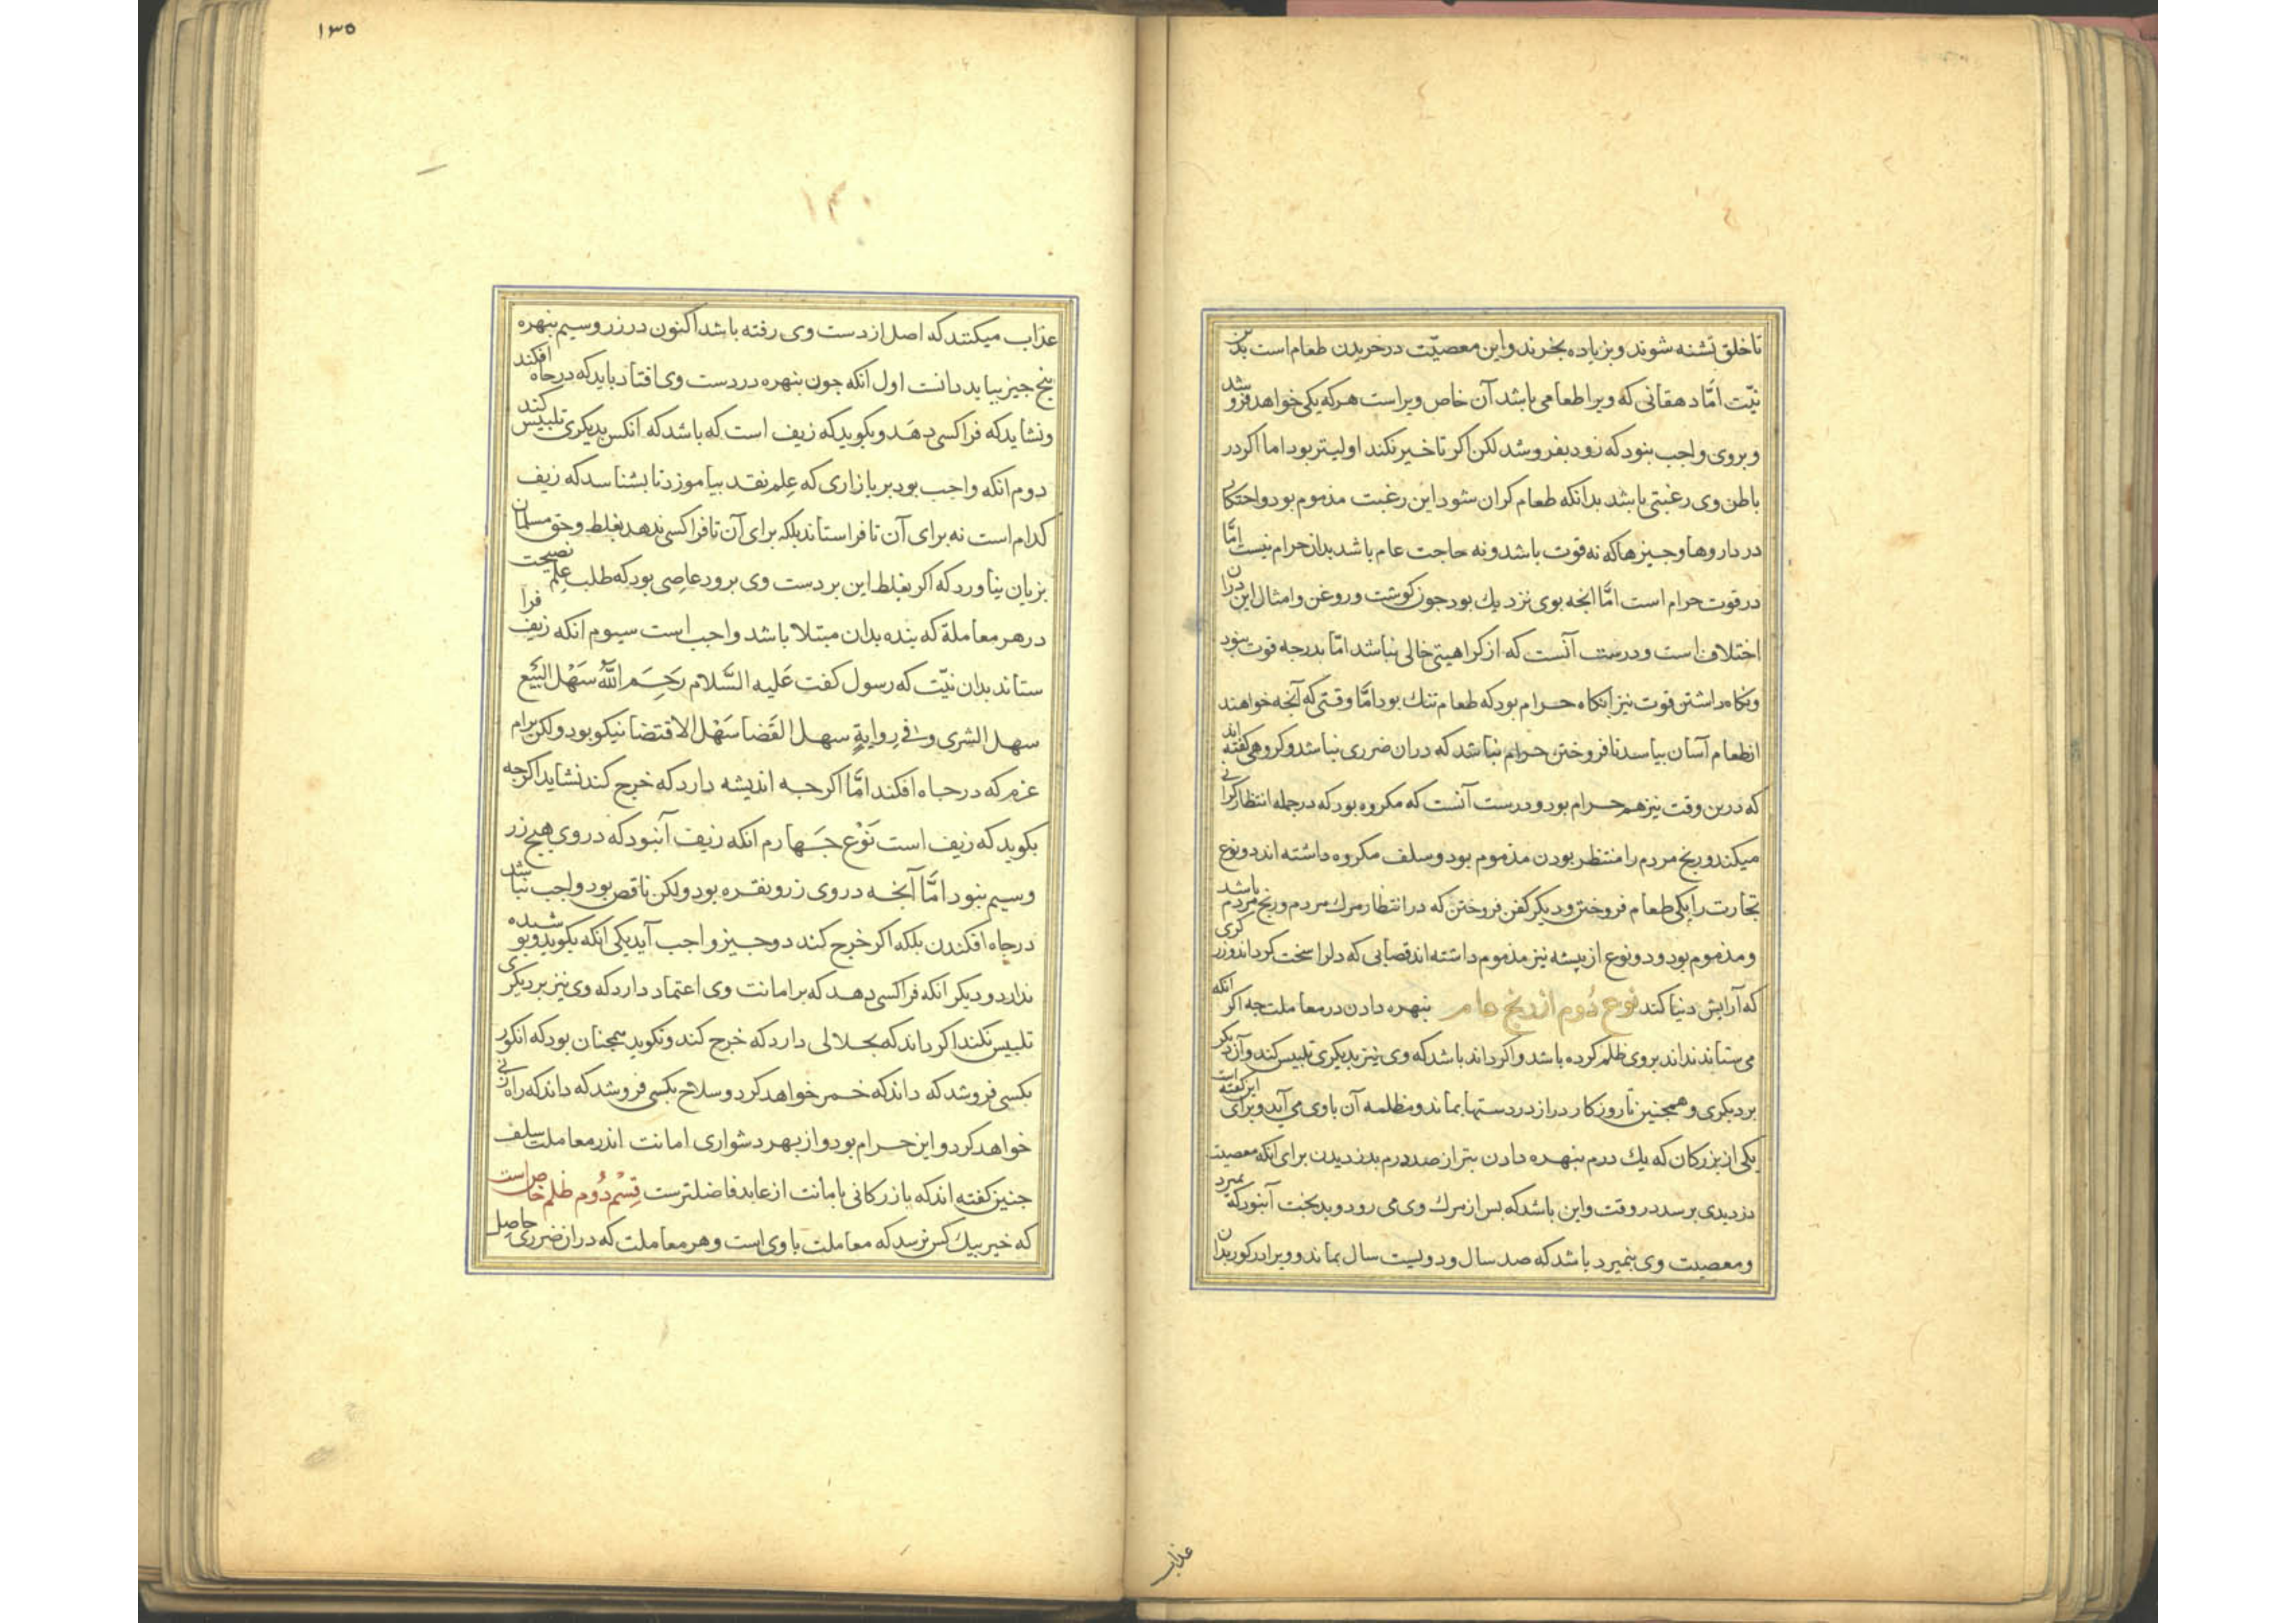 تا خلق تشنه شوند و بزیاده بخرند و این معصیّت در خریدن طعام است بدین
نیّت امّا دهقانی که ویرا طعامی باشد آن خاص ویراست هرکه یکی خواهد فروشد
و بروی واجب بنود که زود بفروشد لکن اکر تاخیر نکند اولیتر بود اما اکر در
باطن وی رغبتی باشد بدانکه طعام کران شود این رغبت مذموم بود و احتکار
در داروها و جیزها که نه قوت باشد و نه حاجت عام باشد بدان حرام نیست امّا
در قوت حرام است امّا انجه بوی نزدیك بود جون کوشت و روغن و امثال این دران
اختلاف است و درست آنست که از کراهیتی خالی نباشد امّا بدرجه قوت بنود
و نکاه داشتن قوت نیز انکاه حرام بود که طعام تنك بود امّا وقتی که آنجه خواهند
از طعام آسان بیاسد تا فروختن حرام نباشد که دران ضرری نباشد و کروهی کفته اند
که درین وقت نیز هم حرام بود و درست آنست که مکروه بود که درجمله انتظار کرانی
میکند و رنج مردم را منتظر بودن مذموم بود و سلف مکروه داشته اند دو نوع
تجارت را یکی طعام فروختن و دیکر کفن فروختن که در انتظار مرك مردم و رنج مردم باشد
و مذموم بود و دو نوع از پیشه نیز مذموم داشته اند قصابی که دلرا سخت کرداند و زرکری
که آرایش دنیا کند نوع دُوم از رنج عام بنهره دادن در معاملت جه اکر انکه
می ستاند نداند بروی ظلم کرده باشد و اکر داند باشد که وی نیز بدیکری تلبیس کند و آن دیکر
بر دیکری و همجنین تا روزکار دراز در دستها بماند و مظلمه آن باوی می آید و برای این کفته است
یکی از بزرکان که یك درم بنهره دادن بتر از صد درم بدزدیدن برای انکه معصیت
دزدیدی برسد در وقت و این باشد که بس از مرك وی می رود و بدبخت آنبود که بمیرد
و معصیت وی بنمیرد باشد که صد سال و دویست سال بماند و ویرا در کور بدان
عذاب
۱۳۵
عذاب میکنند که اصل از دست وی رفته باشد اکنون در زر و سیم بنهره
بنج جیز بیاید دانت اول انکه جون بنهره در دست وی افتاد باید که در جاه افکند
و نشاید که فرا کسی دهَد و بکوید که زیف است که باشد که انکس بدیکری تلبیس کند
دوم انکه واجب بود بر بازاری که عِلم نقد بیاموزد تا بشناسد که زیف
کدام است نه برای آن تا فراستاند بلکه برای آن تا فرا کسی ندهد بغلط و حق مسلمان
بزیان نیاورد که اکر بغلط این بر دست وی برود عاصِی بود که طلب عِلم نصیحت
در هر معاملة که بنده بدان مبتلا باشد واجب است سیوم انکه زیف فرا
ستاند بدان نیّت که رسول کفت عَلیه السَّلام رَحِمَ اللّٰه سَهْل البَیْع
سهل الشری و فی رِوایةٍ سهل القَضا سَهْل الاقتضا نیکو بود و لکن برام
عزم که در جاه افکند امَّا اکرجه اندیشه دارد که خرج کند نشاید اکرجه
بکوید که زیف است نَوْع جَهارم انکه زیف آنبود که در وی هیج زر
و سیم بنود امَّا آنجه در وی زر و نقره بود و لکن ناقص بود واجب نباشد
در جاه افکندن بلکه اکر خرج کند دو جیز واجب آید یکی انکه بکوید و بوشیده
ندارد و دیکر انکه فرا کسی دهد که بر امانت وی اعتماد دارد که وی نیز بر دیکری
تلبیس نکند اکر داند که بحلالی دارد که خرج کند و نکوید همجنان بود که انکور
بکسی فروشد که داند که خمر خواهد کرد و سلاح بکسی فروشد که داند که راه زنی
خواهد کرد و این حرام بود و از بهر دشواری امانت اندر معاملت سلف
جنین کفته اند که بازرکانی بامانت از عابد فاضلترست قِسْم دُوم ظلم خاص است
که خیر بیك کس نرسد که معاملت باوی است و هر معاملت که دران ضرری حاصِل